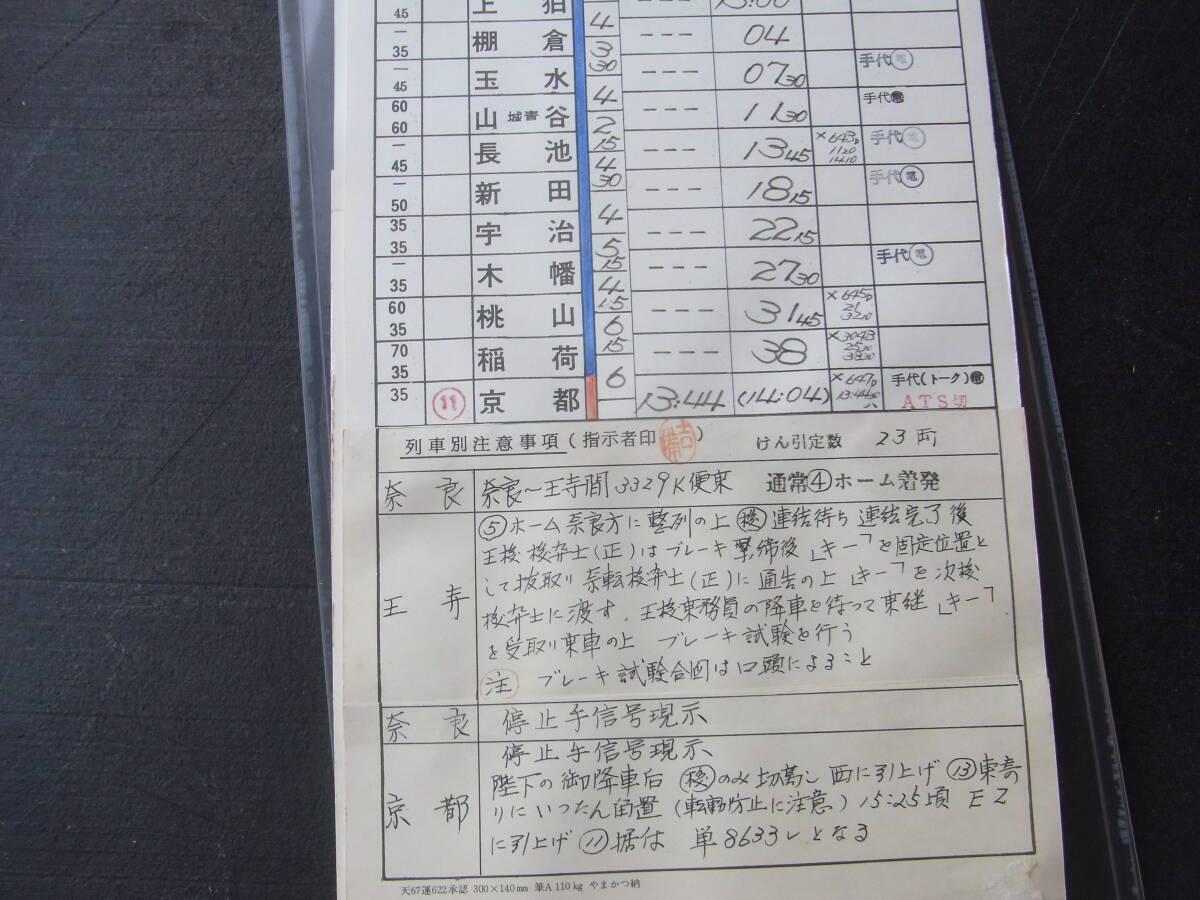 45 上 狛 13:00
4
35 棚 倉 --- 04
3 30
45 玉 水 --- 07 30 手代(電)
4
60 60 山城青谷 --- 11 30 手代(電)
2 15
45 長 池 --- 13 45 ×643D 1120 1410 手代(電)
4 30
50 新 田 --- 18 15 手代(電)
4
35 35 宇 治 --- 22 15
5 15
35 木 幡 --- 27 30 手代(電)
4 15
60 35 桃 山 --- 31 45 ×645D 21 3210
6 15
70 35 稲 荷 --- 38
6
35 ⑪ 京 都 13:44 (14:04) ×647D 13:4430 手代(トーク)(電)
ATS切
列車別注意事項(指示者印 ) けん引定数 23両
奈 良 奈良〜王寺間3329K便乗 通常④ホーム着発
王 寺 ⑤ホーム奈良方に整列の上 連結待ち 連結完了後
はブレーキ緊締後「キー」を固定位置と
して抜取り に通告の上「キー」を
に渡す. の降車を待って乗継「キー」
を受取り乗車の上 ブレーキ試験を行う
(注) ブレーキ試験合図は口頭によること
奈 良 停止手信号現示
京 都 停止手信号現示
陛下の御降車后 のみ切離し 西に引上げ ⑬東寄
りにいったん留置(転動防止に注意)15:25頃 EZ
に引上げ ⑪据付 単8633レとなる
天67運622承認 300×140mm 筆A 110kg やまかつ納